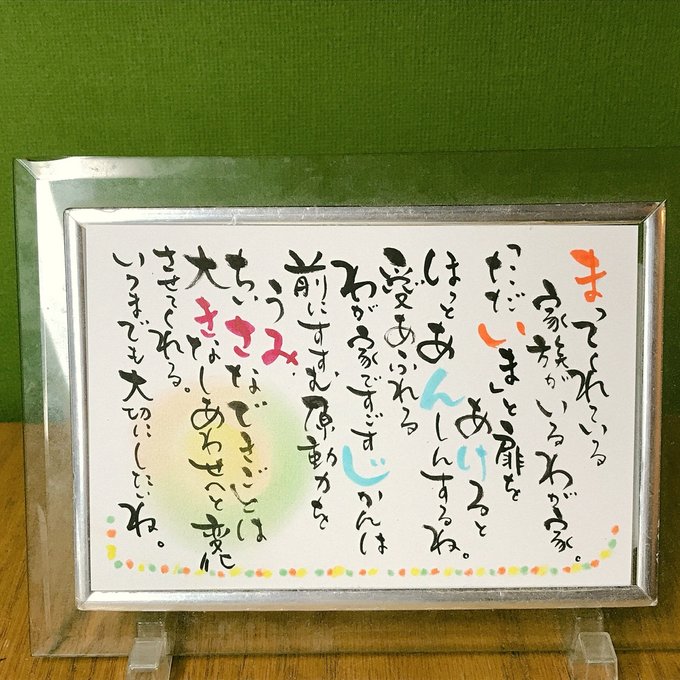 まってくれている
家族がいるわが家。
「ただいま」と扉を
あけると
ほっとあんしんするね。
愛あふれる
わが家ですごすじかんは
前にすすむ原動力を
うみ
ちいさなできごとは
大きなしあわせへと変化
させてくれる。
いつまでも大切にしたいね。